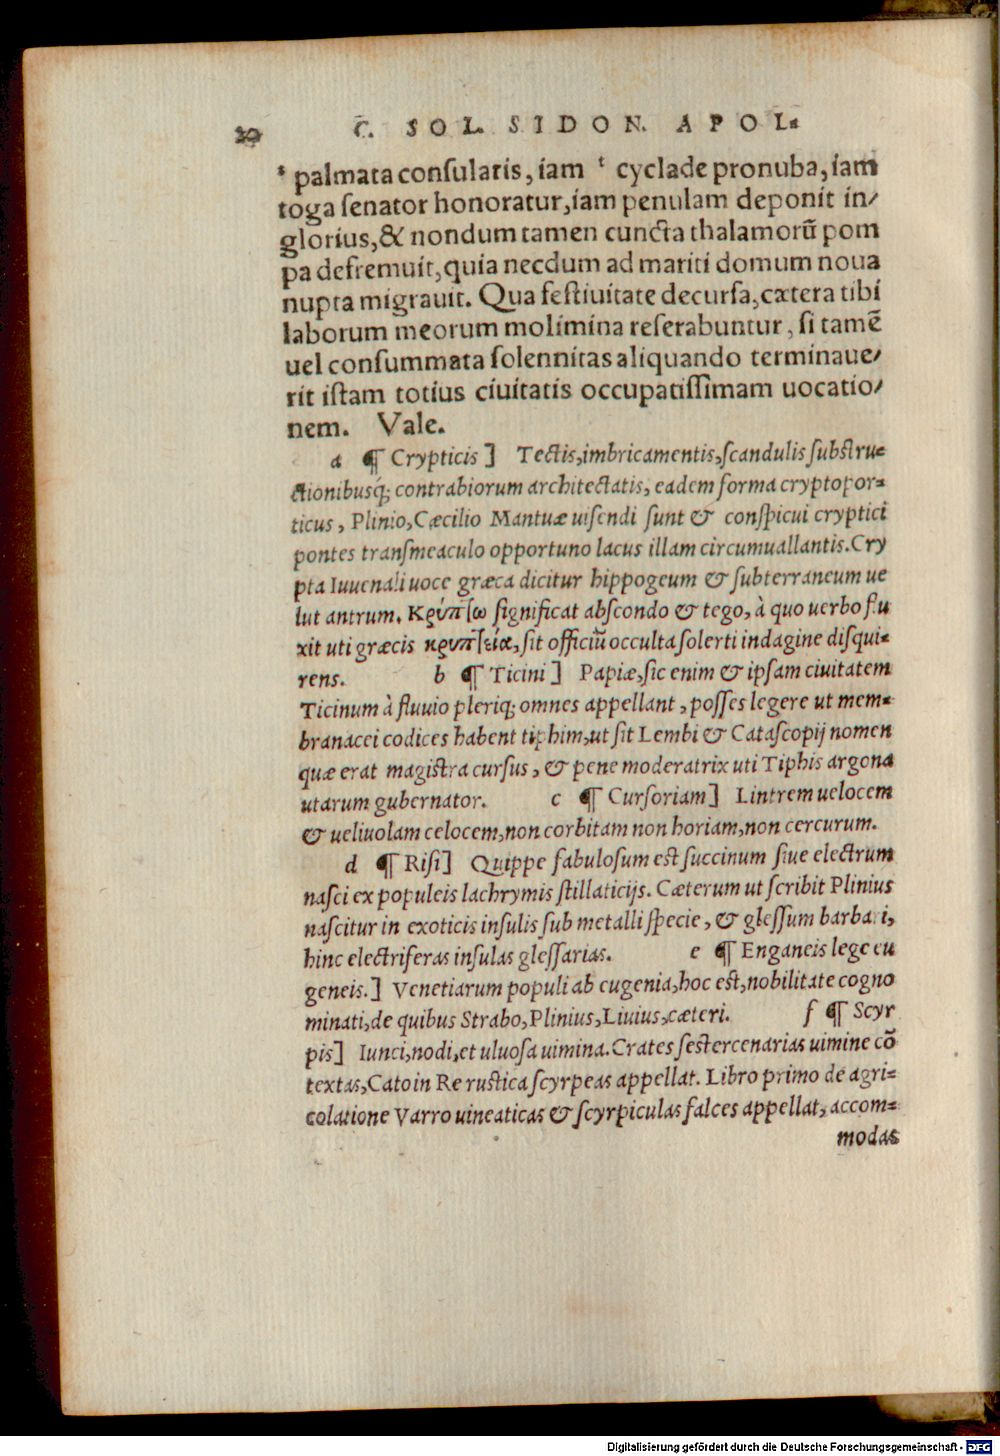 20 C. SOL. SIDON. APOL.
ˢ palmata conſularis, iam ᵗ cyclade pronuba, iam
toga ſenator honoratur, iam penulam deponit in/
glorius, & nondum tamen cuncta thalamorū pom
pa defremuit, quia necdum ad mariti domum noua
nupta migrauit. Qua feſtiuitate decurſa, cætera tibi
laborum meorum molimina reſerabuntur, ſi tamē
uel conſummata ſolennitas aliquando terminaue/
rit iſtam totius ciuitatis occupatiſſimam uocatio/
nem. Vale.
a ¶ Crypticis] Tectis, imbricamentis, ſcandulis ſubſtru-
ctionibusq; contrabiorum architectatis, eadem forma cryptopor-
ticus, Plinio, Cæcilio Mantuæ uiſendi ſunt & conſpicui cryptici
pontes tranſmeaculo opportuno lacus illam circumuallantis. Cry
pta Iuuenali uoce græca dicitur hippogeum & ſubterraneum ue
lut antrum. Κρύπτω ſignificat abſcondo & tego, à quo uerbo flu
xit uti græcis κρυπτεία, ſit officiū occulta ſolerti indagine diſqui-
rens. b ¶ Ticini] Papiæ, ſic enim & ipſam ciuitatem
Ticinum à fluuio pleriq; omnes appellant, poſſes legere ut mem-
branacei codices habent tiphim, ut ſit Lembi & Cataſcopij nomen
quæ erat magiſtra curſus, & pene moderatrix uti Tiphis argona
utarum gubernator. c ¶ Curſoriam] Lintrem uelocem
& ueliuolam celocem, non corbitam non horiam, non cercurum.
d ¶ Riſi] Quippe fabuloſum eſt ſuccinum ſiue electrum
naſci ex populeis lachrymis ſtillaticijs. Cæterum ut ſcribit Plinius
naſcitur in exoticis inſulis ſub metalli ſpecie, & gleſſum barbari,
hinc electriferas inſulas gleſſarias. e ¶ Enganeis lege eu
geneis.] Venetiarum populi ab eugenia, hoc eſt, nobilitate cogno
minati, de quibus Strabo, Plinius, Liuius, cæteri. f ¶ Scyr
pis] Iunci, nodi, et uluoſa uimina. Crates ſeſtercenarias uimine cō
textas, Cato in Re ruſtica ſcyrpeas appellat. Libro primo de agri-
colatione Varro uineaticas & ſcyrpiculas falces appellat, accom-
modas
Digitalisierung gefördert durch die Deutsche Forschungsgemeinschaft - DFG